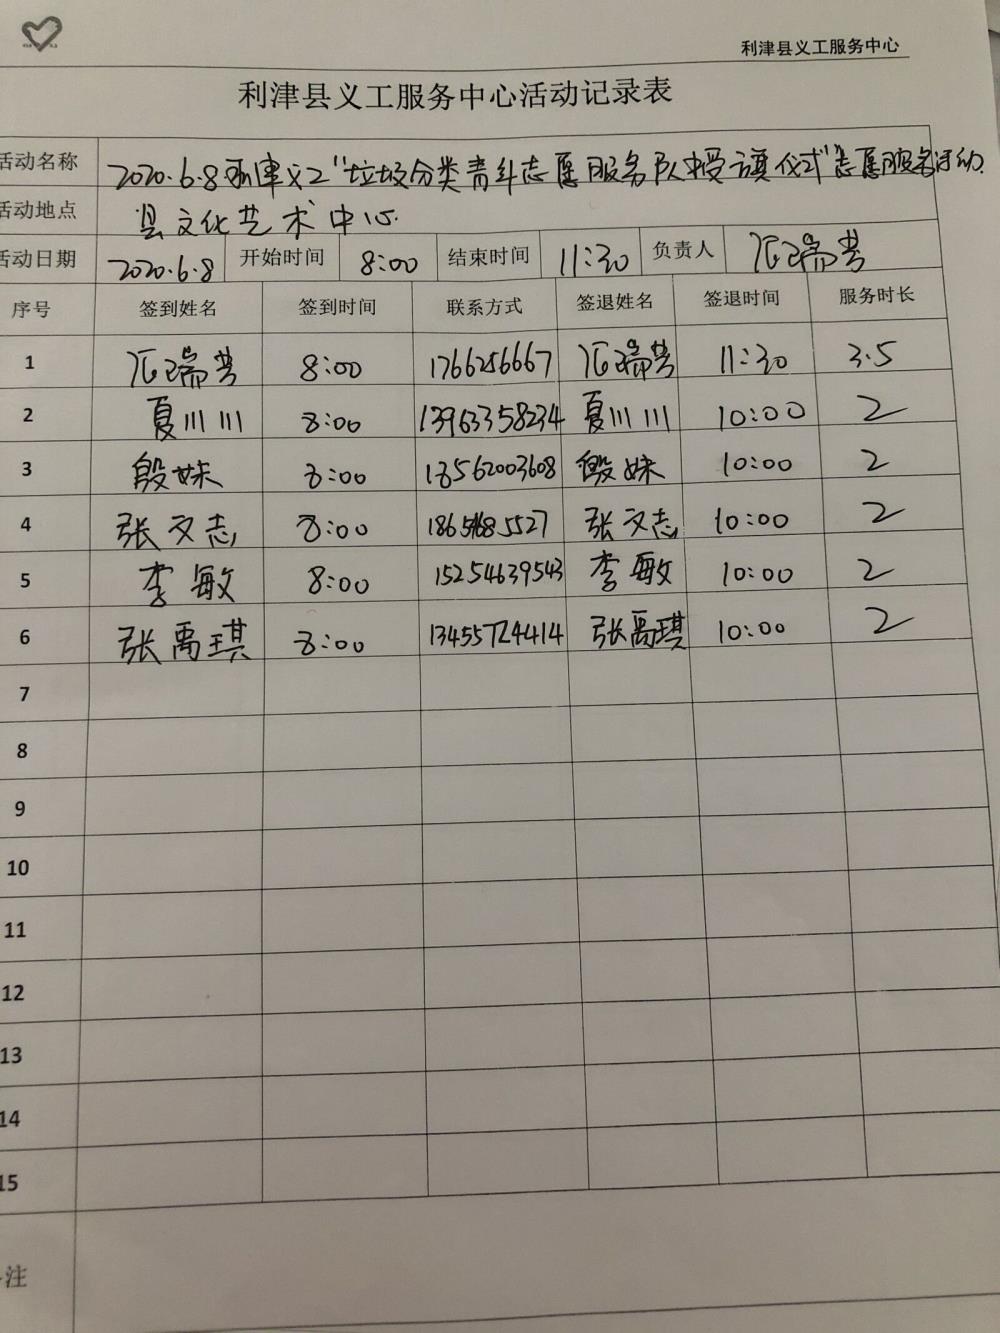 利津县义工服务中心
利津县义工服务中心活动记录表
活动名称 2020.6.8利津义工"垃圾分类青年志愿服务队授旗仪式"志愿服务活动.
活动地点 县文化艺术中心.
活动日期 2020.6.8 开始时间 8:00 结束时间 11:30 负责人 瑞芳
序号 签到姓名 签到时间 联系方式 签退姓名 签退时间 服务时长
1 瑞芳 8:00 1766256667 瑞芳 11:30 3.5
2 夏川川 8:00 13963358234 夏川川 10:00 2
3 殷妹 8:00 13562003608 殷妹 10:00 2
4 张文志 8:00 张文志 10:00 2
5 李敏 8:00 15254639543 李敏 10:00 2
6 张禹琪 8:00 13455724414 张禹琪 10:00 2
7
8
9
10
11
12
13
14
15
注